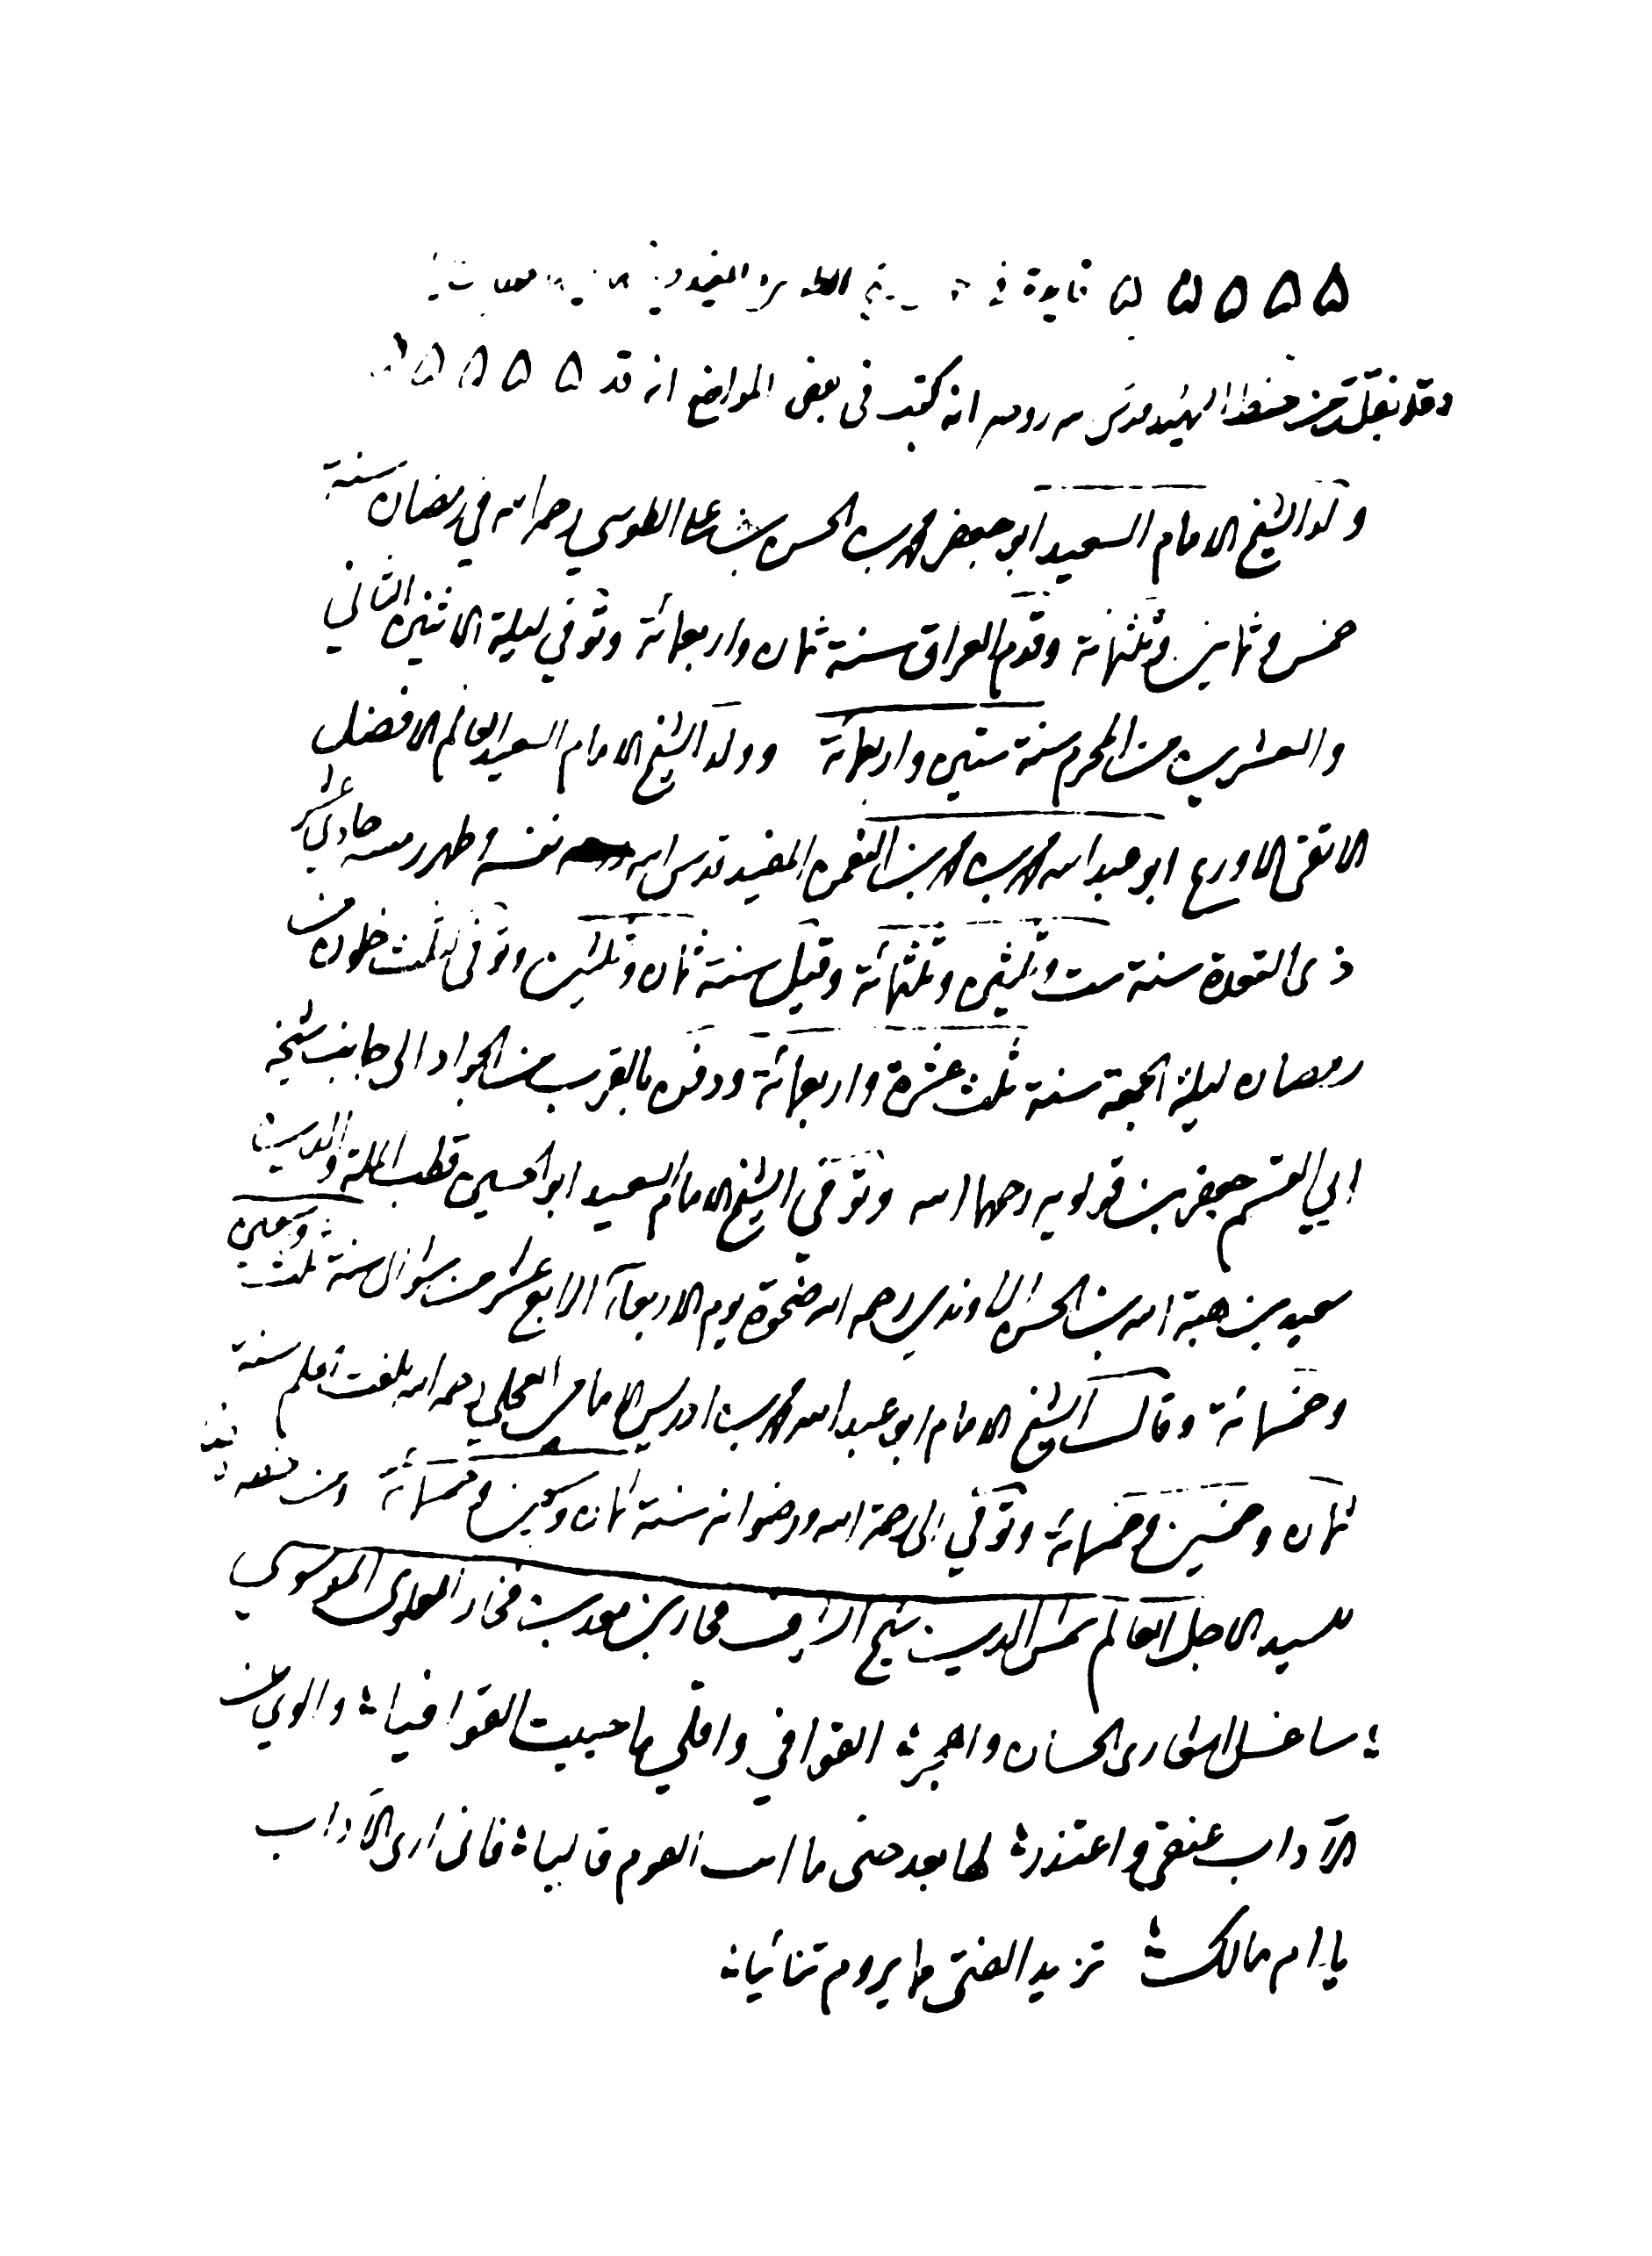 ۵ ۵ ۵ ۵ ۵ فايدة في
وقد نقلت من خط الشهيد قدس سره روحه انه كتب فى بعض المواضع انه قد ۵ ۵ ۵ ۵
ولد الشيخ الامام السعيد ابو جعفر محمد بن الحسن بن علي الطوسي رحمه الله في رمضان سنة
خمس وثمانين وثلثمائة وقدم العراق سنة ثمان واربعمائة وتوفي ليلة الاثنين الثاني
والعشرين من المحرم سنة ستين واربعمائة وولد الشيخ الامام السعيد العالم الافضل
الاتقى الاورع ابو عبد الله محمد بن محمد بن النعمن المفيد قدس الله نفسه وطهر رمسه حادي عشر
ذى القعدة سنة ست وثلثين وثلثمائة وقيل سنة ثمان وثلثين وتوفى لثلث خلون من
رمضان ليلة الجمعة سنة ثلث عشرة واربعمائة ودفن بالقرب من الجواد الى جانب شيخه
ابي القسم جعفر بن قولويه رحمهما الله وتوفي الشيخ الامام السعيد ابو الحسين قطب الملة والدين
سعيد بن هبة الله بن الحسن الراوندي رحمه الله ضحوة يوم الاربعاء الرابع عشر من شوال سنة ثلث وسبعين
وخمسمائة وقال الشيخ الامام ابو عبد الله محمد بن ادريس الامامي العجلي رحمه الله بلغت الحلم سنة
ثمان وخمسين وخمسمائة وتوفي الى رحمة الله ورضوانه سنة ثمان وسبعين وخمسمائة ومن خطه
للسيد الاجل العالم شمس الدين شيخ الشرف فخار بن معد بن فخار العلوى الموسوي
؛ ساغسل اشعارى الحسان واهجر ؛ القوافي واقلي ما حييت القوافيا ؛ والوي عن
الآداب عنقى واعتذر ؛ لها بعد حتى ما القوم قاليا ؛ فانى ارى الآداب
يا ام مالك ؛ تزيد الفتى مما يروم تنائيا ؛